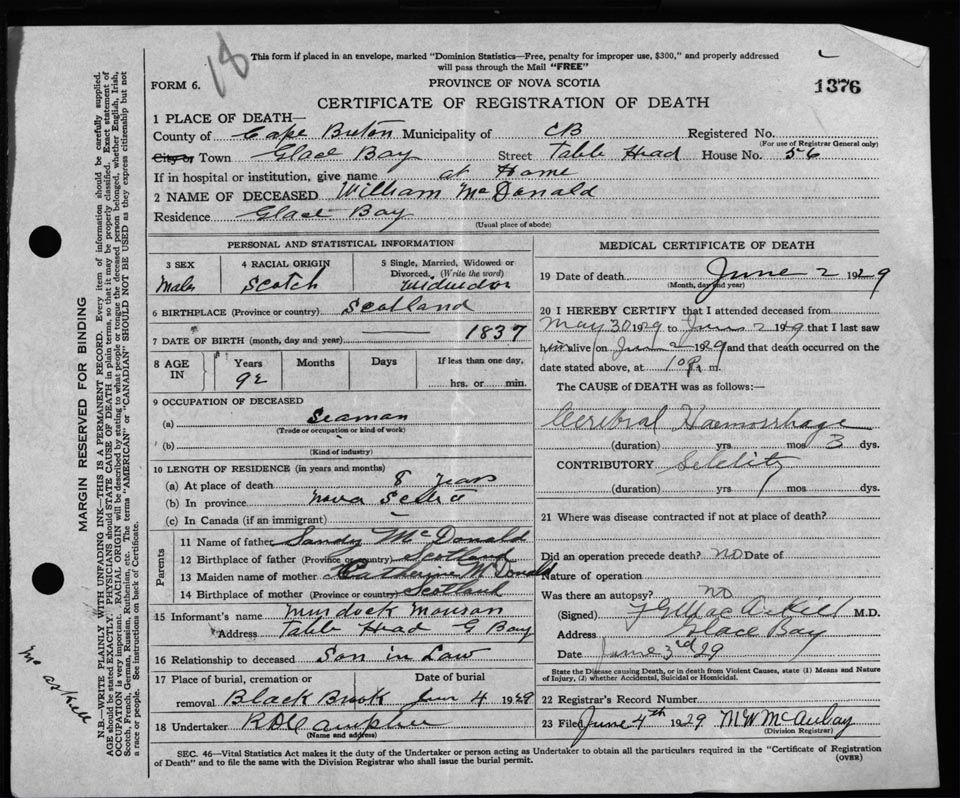 18
This form if placed in an envelope, marked "Dominion Statistics—Free, penalty for improper use, $300," and properly addressed
will pass through the Mail "FREE"
FORM 6.
PROVINCE OF NOVA SCOTIA
1376
CERTIFICATE OF REGISTRATION OF DEATH
1 PLACE OF DEATH—
County of Cape Breton Municipality of CB Registered No.
(For use of Registrar General only)
City or Town Glace Bay Street Table Head House No. 56
If in hospital or institution, give name at Home
2 NAME OF DECEASED William McDonald
Residence Glace Bay
(Usual place of abode)
PERSONAL AND STATISTICAL INFORMATION
3 SEX 4 RACIAL ORIGIN 5 Single, Married, Widowed or
Divorced. (Write the word)
Male Scotch Widwidor
6 BIRTHPLACE (Province or country) Scotland
7 DATE OF BIRTH (month, day and year) 1837
8 AGE IN Years Months Days If less than one day,
92 hrs. or min.
9 OCCUPATION OF DECEASED
(a) Seaman
(Trade or occupation or kind of work)
(b)
(Kind of industry)
10 LENGTH OF RESIDENCE (in years and months)
(a) At place of death 8 years
(b) In province Nova Scotia
(c) In Canada (if an immigrant)
Parents
11 Name of father Sandy McDonald
12 Birthplace of father (Province or country) Scotland
13 Maiden name of mother Catherine McDonald
14 Birthplace of mother (Province or country) Scotland
15 Informant's name Murdock
Address Table Head G Bay
16 Relationship to deceased Son in Law
17 Place of burial, cremation or Date of burial
removal Black Brook June 4 1929
18 Undertaker
(Name and address)
MEDICAL CERTIFICATE OF DEATH
19 Date of death June 2 1929
(Month, day and year)
20 I HEREBY CERTIFY that I attended deceased from
May 30 1929 to June 2 1929 that I last saw
him alive on June 2 1929 and that death occurred on the
date stated above, at 10 P. m.
The CAUSE of DEATH was as follows:—
Cerebral Haemorrhage
(duration) yrs mos 3 dys.
CONTRIBUTORY
(duration) yrs. mos. dys.
21 Where was disease contracted if not at place of death?
Did an operation precede death? no Date of
Nature of operation
Was there an autopsy? no
(Signed) M.D.
Address Glace Bay
Date June 3rd 29
State the Disease causing Death, or in death from Violent Causes, state (1) Means and Nature
of Injury, (2) whether Accidental, Suicidal or Homicidal.
22 Registrar's Record Number
23 Filed June 4th 1929 M W McAulay
(Division Registrar)
SEC. 46—Vital Statistics Act makes it the duty of the Undertaker or person acting as Undertaker to obtain all the particulars required in the "Certificate of Registration
of Death" and to file the same with the Division Registrar who shall issue the burial permit.
(OVER)
MARGIN RESERVED FOR BINDING
N.B.—WRITE PLAINLY WITH UNFADING INK—THIS IS A PERMANENT RECORD. Every item of information should be carefully supplied.
AGE should be stated EXACTLY. PHYSICIANS should STATE CAUSE OF DEATH in plain terms, so that it may be properly classified. Exact statement of
OCCUPATION is very important. RACIAL ORIGIN will be described by stating to what people or tongue the deceased person belonged, whether English, Irish,
Scotch, French, German, Russian, Ruthenian, etc. The terms "AMERICAN" or "CANADIAN" SHOULD NOT BE USED as they express citizenship but not
a race or people. See instructions on back of Certificate.